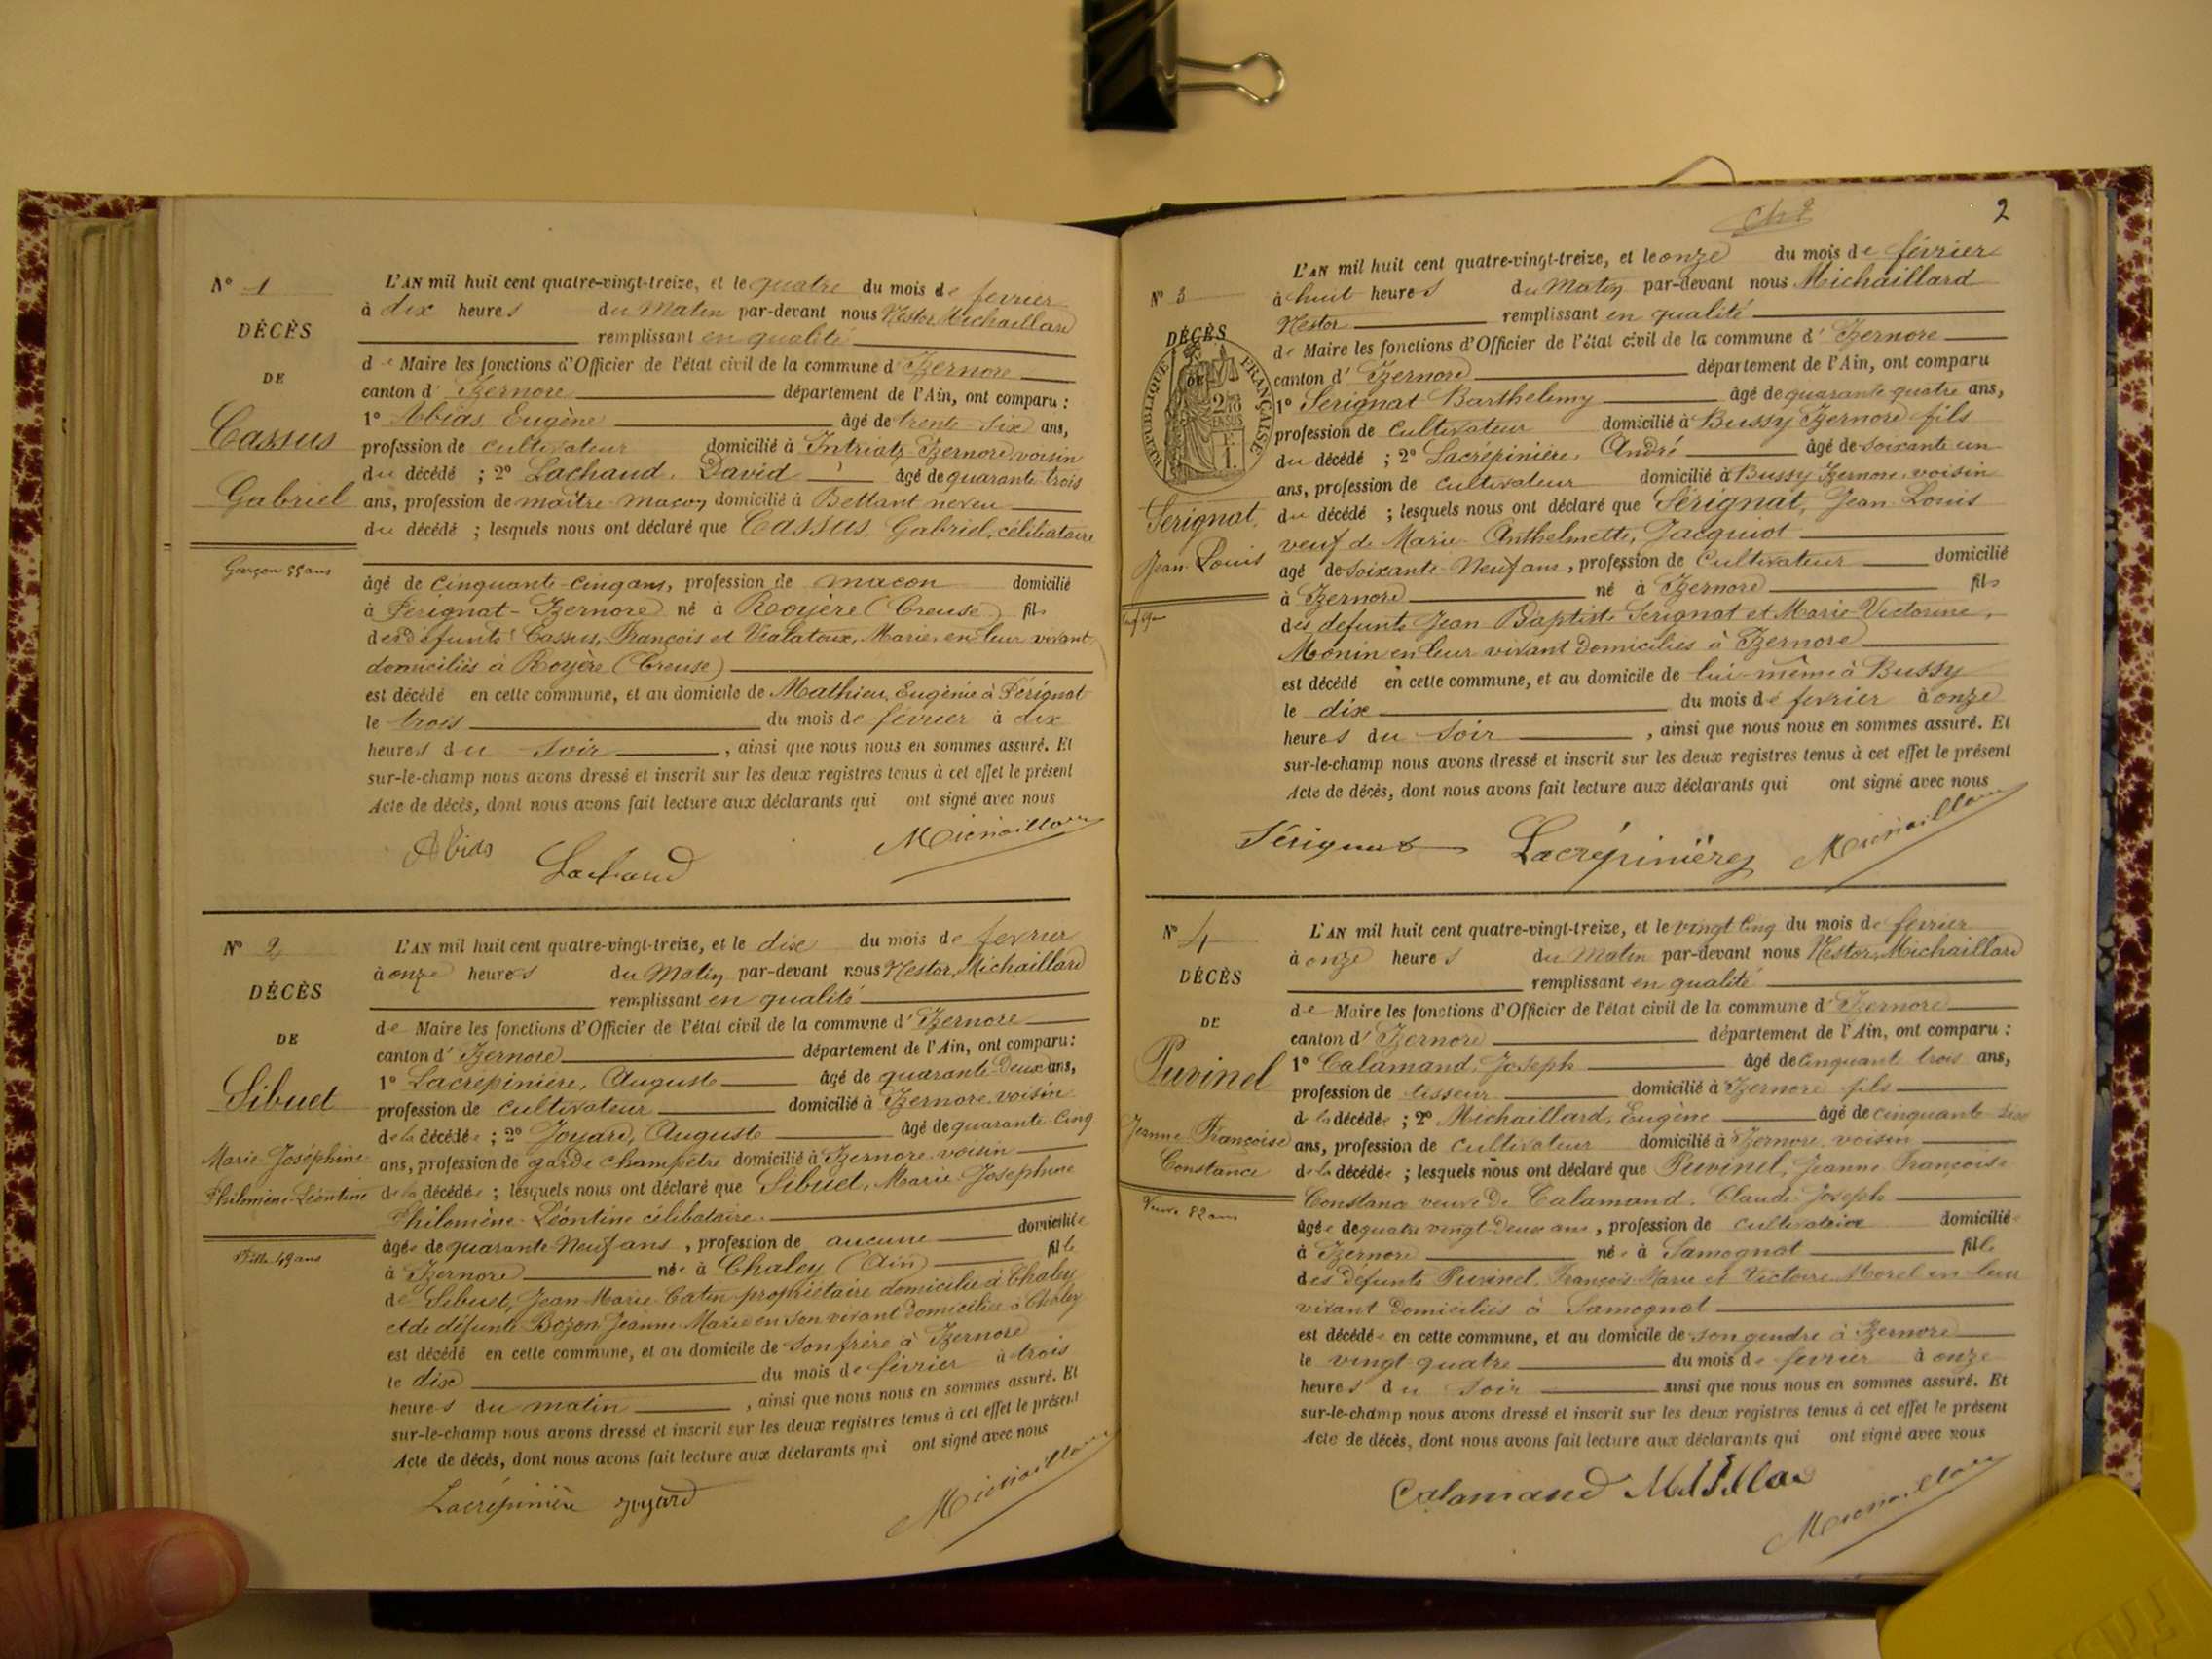 N° 1
DÉCÈS
DE
Cassus
Gabriel
Garçon 55 ans
L'AN mil huit cent quatre-vingt-treize, et le quatre du mois de fevrier
à dix heures du Matin par-devant nous Nestor Michaillard
remplissant en qualité
de Maire les fonctions d'Officier de l'état civil de la commune d'Izernore
canton d'Izernore département de l'Ain, ont comparu :
1° Abias Eugène âgé de trente-six ans,
profession de cultivateur domicilié à Intriat, Izernore, voisin
du décédé ; 2° Lachaud, David âgé de quarante-trois
ans, profession de maître-maçon domicilié à Bettant neveu
du décédé ; lesquels nous ont déclaré que Cassus Gabriel, célibataire
âgé de cinquante-cinq ans, profession de macon domicilié
à Perignat-Izernore né à Royère (Creuse) fils
des défunts Cassus, François et Vialatoux, Marie, en leur vivant
domiciliés à Royère (Creuse)
est décédé en cette commune, et au domicile de Mathieu, Eugènie à Pérignat
le trois du mois de février à dix
heures du soir , ainsi que nous nous en sommes assuré. Et
sur-le-champ nous avons dressé et inscrit sur les deux registres tenus à cet effet le présent
Acte de décès, dont nous avons fait lecture aux déclarants qui ont signé avec nous
Abias Lachaud Michaillard
N° 2
DÉCÈS
DE
Sibuet
Marie-Joséphine
Philomène-Léontine
Fille 49 ans
L'AN mil huit cent quatre-vingt-treize, et le dix du mois de fevrier
à onze heures du Matin par-devant nous Nestor, Michaillard
remplissant en qualité
de Maire les fonctions d'Officier de l'état civil de la commune d'Izernore
canton d'Izernore département de l'Ain, ont comparu :
1° Lacrépinière, Auguste âgé de quarante-deux ans,
profession de cultivateur domicilié à Izernore voisin
de la décédée ; 2° Joyard, Auguste âgé de quarante-cinq
ans, profession de garde champêtre domicilié à Izernore voisin
de la décédée ; lesquels nous ont déclaré que Sibuet, Marie-Josephine
Philomène-Léontine célibataire.
âgée de quarante-neuf ans, profession de aucune domiciliée
à Izernore née à Chaley (Ain) fille
de Sibuet, Jean-Marie-Catin propriétaire domicilié à Chaley
et de défunte Bozon Jeanne-Marie en son vivant domiciliée à Chaley
est décédé en cette commune, et au domicile de son frère à Izernore
le dix du mois de février à trois
heures du matin , ainsi que nous nous en sommes assuré. Et
sur-le-champ nous avons dressé et inscrit sur les deux registres tenus à cet effet le présent
Acte de décès, dont nous avons fait lecture aux déclarants qui ont signé avec nous
Lacrépinière Joyard Michaillard
2
N° 3
DÉCÈS
DE
RÉPUBLIQUE FRANÇAISE
Serignat,
Jean-Louis
L'AN mil huit cent quatre-vingt-treize, et le onze du mois de février
à huit heures du Matin par-devant nous Michaillard
Nestor remplissant en qualité
de Maire les fonctions d'Officier de l'état civil de la commune d'Izernore
canton d'Izernore département de l'Ain, ont comparu
1° Serignat Barthelemy âgé de quarante quatre ans,
profession de Cultivateur domicilié à Bussy Izernore fils
du décédé ; 2° Lacrépinière, André âgé de soixante un
ans, profession de cultivateur domicilié à Bussy Izernore, voisin
du décédé ; lesquels nous ont déclaré que Sérignat, Jean-Louis
veuf de Marie-Anthelmette, Jacquiot
agé de soixante-neuf ans, profession de Cultivateur domicilié
à Izernore né à Izernore fils
des defunts Jean-Baptiste Serignat et Marie-Victorine,
Monin en leur vivant domiciliés à Izernore
est décédé en cette commune, et au domicile de lui-même à Bussy
le dix du mois de fevrier à onze
heures du soir , ainsi que nous nous en sommes assuré. Et
sur-le-champ nous avons dressé et inscrit sur les deux registres tenus à cet effet le présent
Acte de décès, dont nous avons fait lecture aux déclarants qui ont signé avec nous
Sérignat Lacrépinière Michaillard
N° 4
DÉCÈS
DE
Puvinel
Jeanne-Françoise
Constance
Veuve 82 ans
L'AN mil huit cent quatre-vingt-treize, et le vingt cinq du mois de février
à onze heures du Matin par-devant nous Nestor, Michaillard
remplissant en qualité
de Maire les fonctions d'Officier de l'état civil de la commune d'Izernore
canton d'Izernore département de l'Ain, ont comparu :
1° Calamand, Joseph âgé de cinquante trois ans,
profession de tisseur domicilié à Izernore fils
de la décédée ; 2° Michaillard, Eugène âgé de cinquante-six
ans, profession de cultivateur domicilié à Izernore voisin
de la décédée ; lesquels nous ont déclaré que Puvinel, Jeanne-Françoise
Constance veuve de Calamand, Claude-Joseph
âgée de quatre vingt deux ans, profession de cultivatrice domiciliée
à Izernore née à Samognat fille
des défunts Puvinel, François-Marie et Victoire Morel en leur
vivant domiciliés à Samognat
est décédée en cette commune, et au domicile de son gendre à Izernore
le vingt-quatre du mois de fevrier à onze
heures du soir ainsi que nous nous en sommes assuré. Et
sur-le-champ nous avons dressé et inscrit sur les deux registres tenus à cet effet le présent
Acte de décès, dont nous avons fait lecture aux déclarants qui ont signé avec nous
Calamand Michaillard